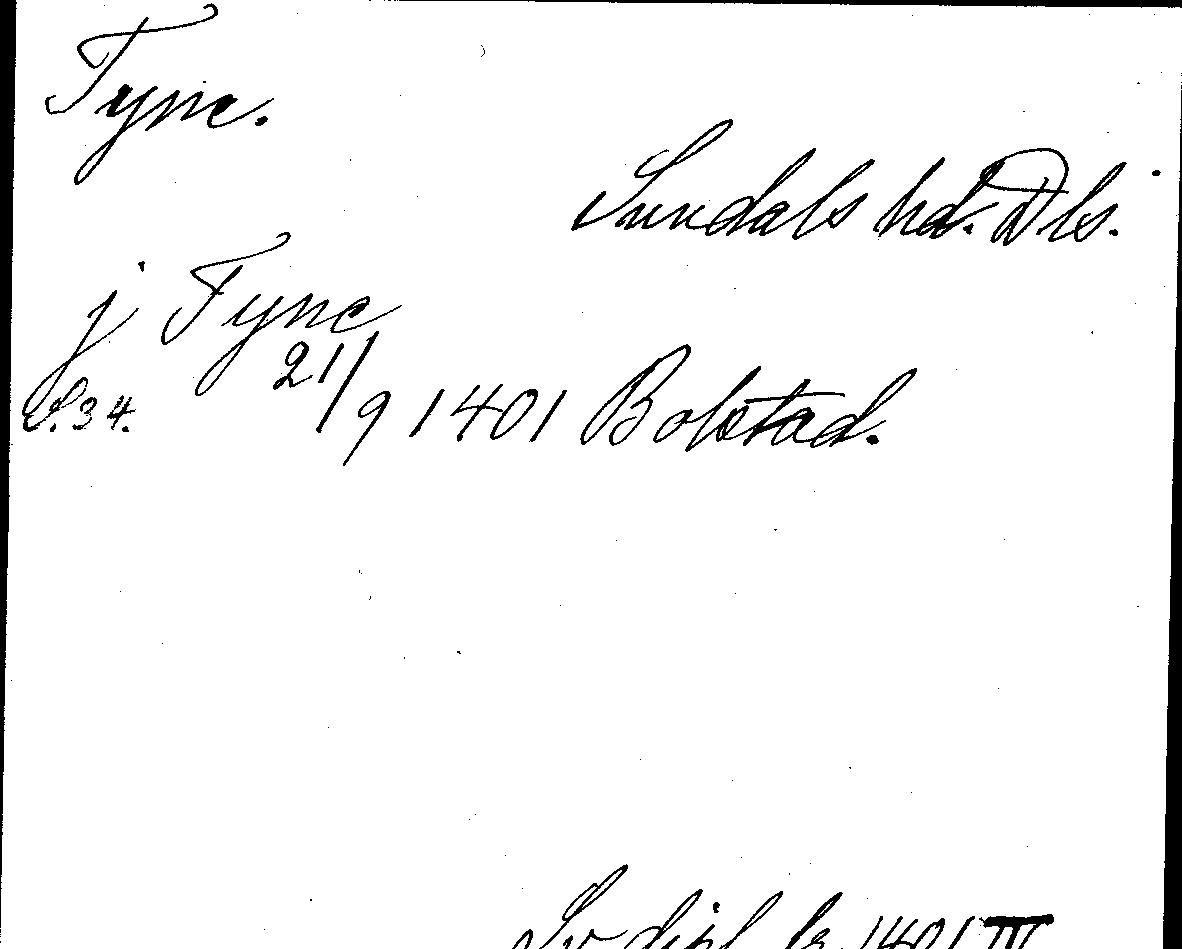 Tyne.
Sundals hd. Dls.
j Tyne
S. 34. 21/9 1401 Bolstad.
Sv dipl fr 1401 III